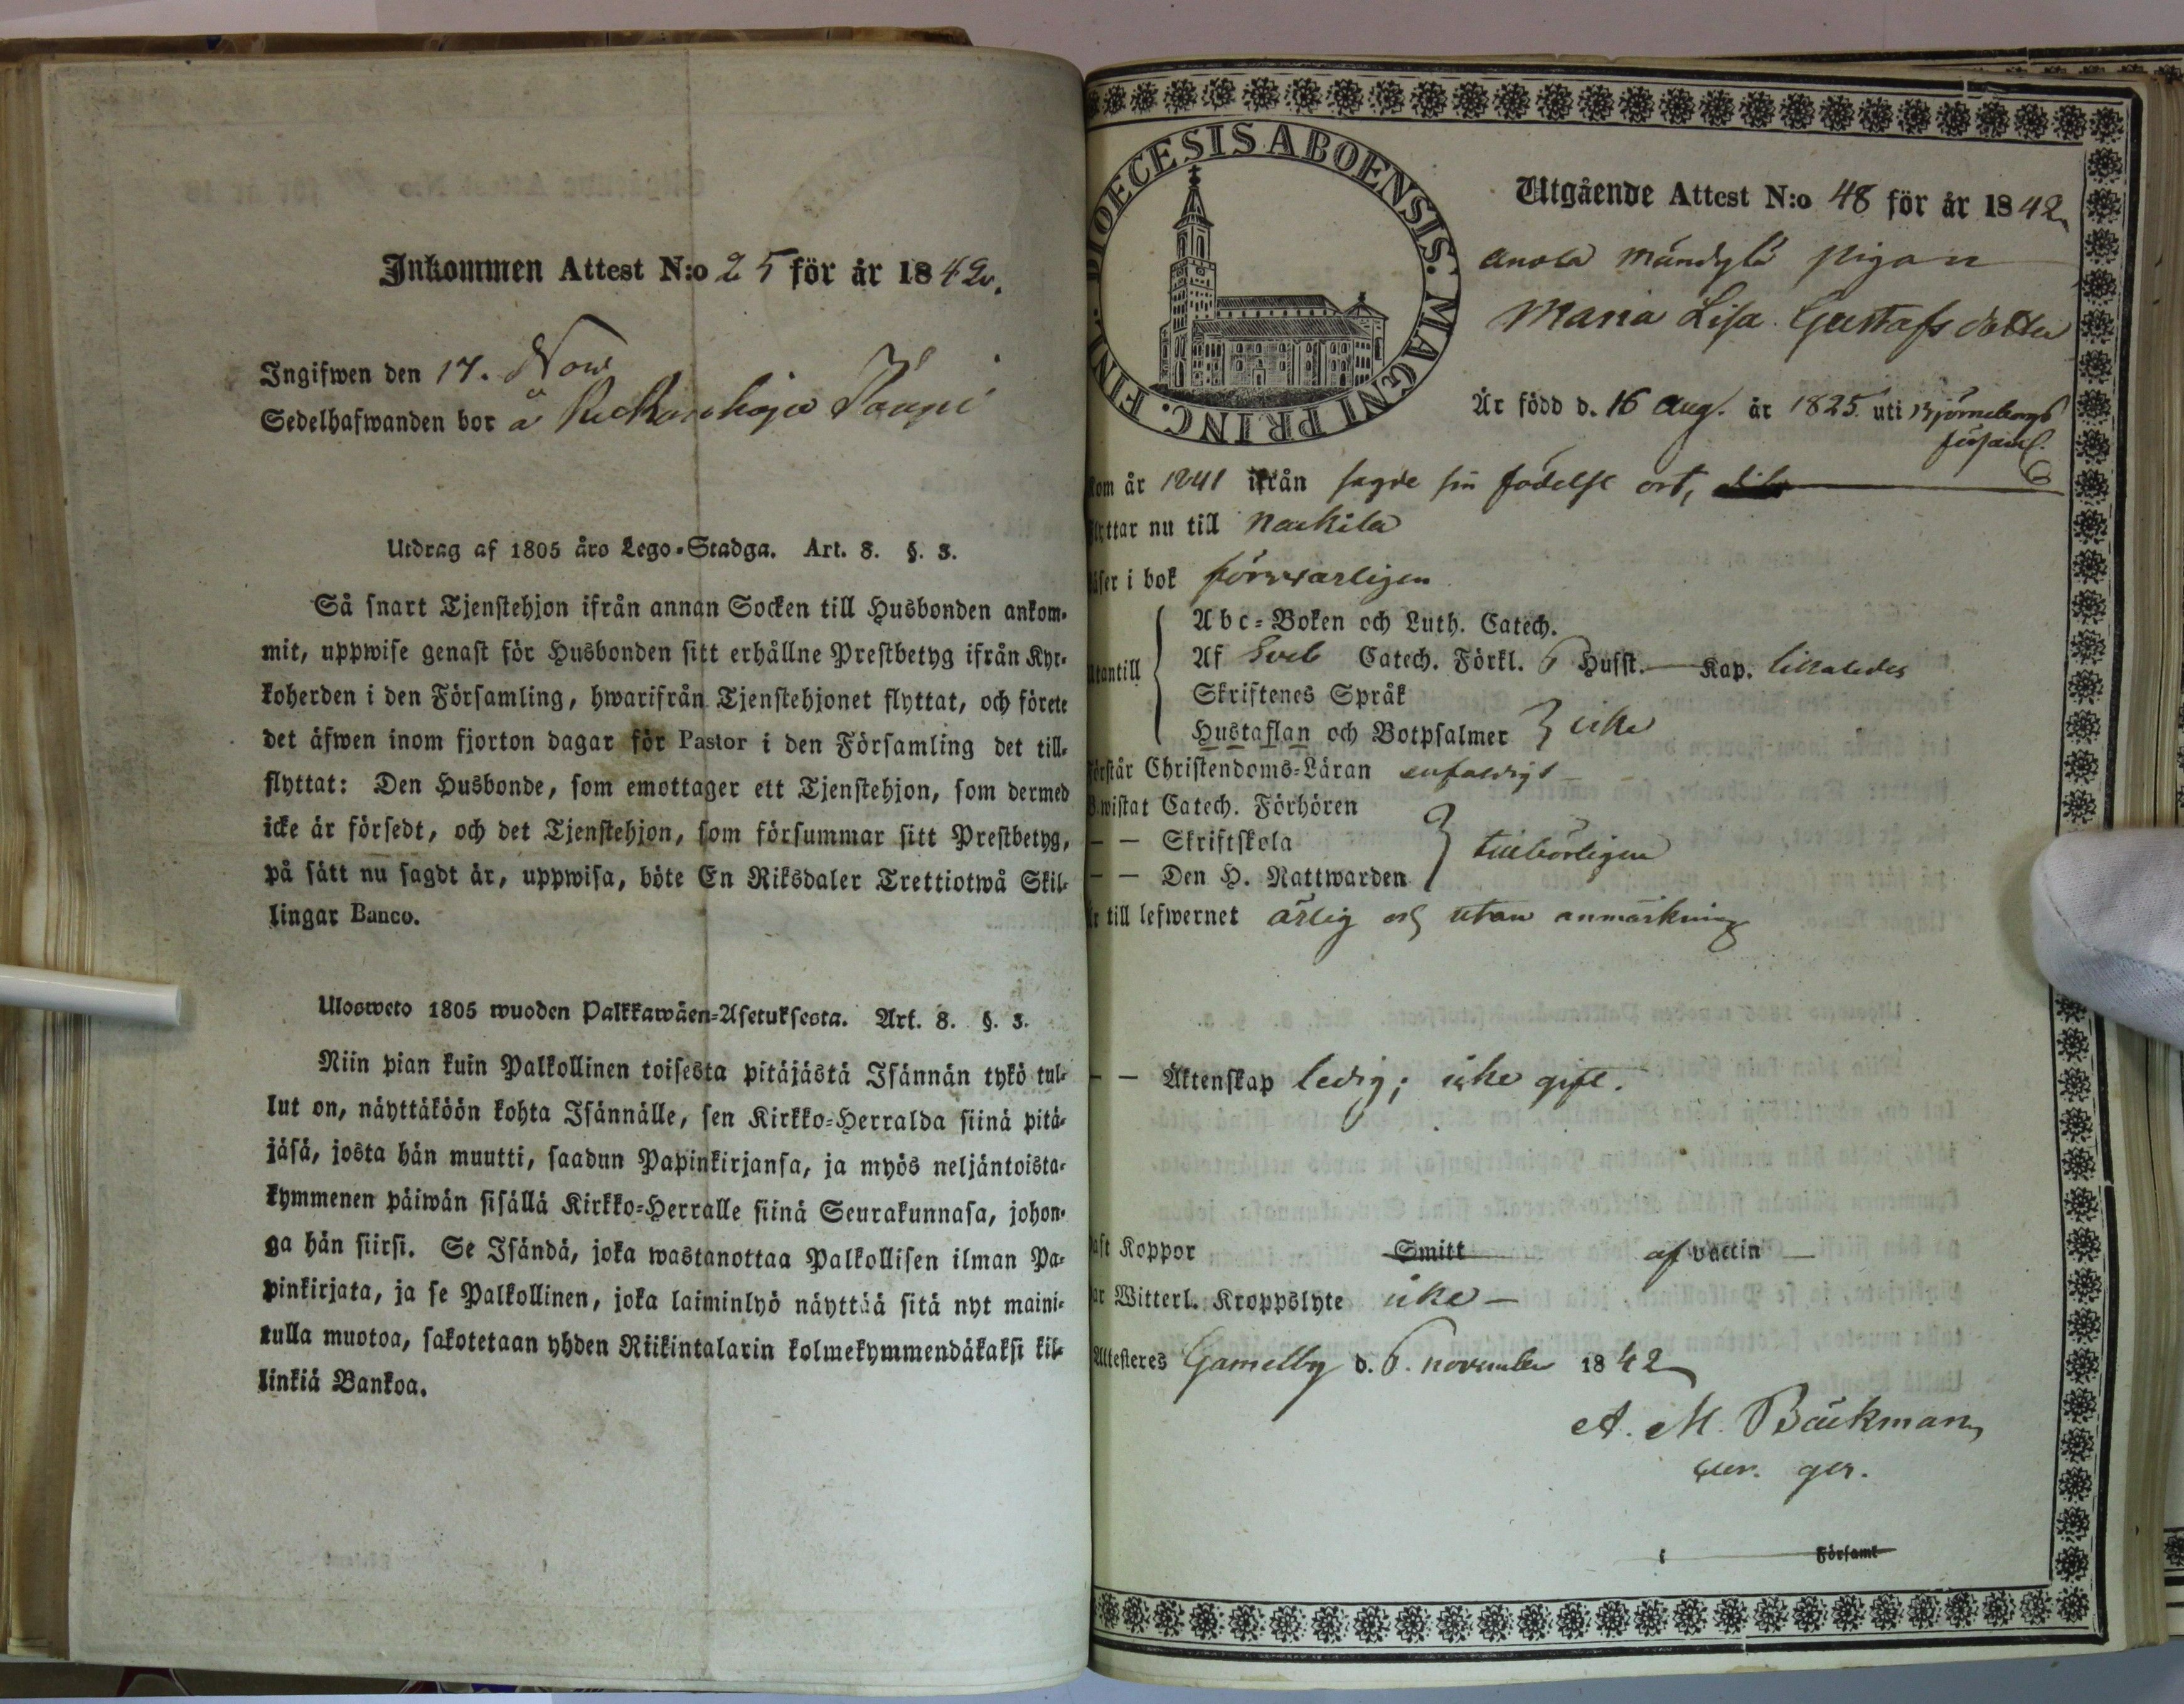 Inkommen Attest N:o 25 för år 1842.
Ingifwen den 17. Nov
Sedelhafwanden bor å
Utdrag af 1805 års Lego-Stadga. Art. 8. §. 3.
Så snart Tjenstehjon ifrån annan Socken till Husbonden ankom-
mit, uppwise genast för Husbonden sitt erhållne Prestbetyg ifrån Kyr-
koherden i den Församling, hwarifrån Tjenstehjonet flyttat, och förete
det äfwen inom fjorton dagar för Pastor i den Församling det till-
flyttat: Den Husbonde, som emottager ett Tjenstehjon, som dermed
icke är försedt, och det Tjenstehjon, som försummar sitt Prestbetyg,
på sätt nu sagdt är, uppwisa, böte En Riksdaler Trettiotwå Skil-
lingar Banco.
Ulosweto 1805 wuoden Palkkawäen-Asetuksesta. Art. 8. §. 3.
Niin pian kuin Palkollinen toisesta pitäjästä Isännän tykö tul-
lut on, näyttäköön kohta Isännälle, sen Kirkko-Herralda siinä pitä-
jäsä, josta hän muutti, saadun Papinkirjansa, ja myös neljäntoista-
kymmenen päiwän sisällä Kirkko-Herralle siinä Seurakunnasa, johon-
ga hän siirsi. Se Isändä, joka wastanottaa Palkollisen ilman Pa-
pinkirjata, ja se Palkollinen, joka laiminlyö näyttää sitä nyt maini-
tulla muotoa, sakotetaan yhden Riikintalarin kolmekymmendäkaksi kil-
linkiä Bankoa.
DIOECESIS ABOENSIS. MAGNI PRINC. FINL.
Utgående Attest N:o 48 för år 1842
Anola Mändylä pigan
Maria Lisa Gustafsdotter
Är född d. 16 Aug. år 1825 uti Björneborgs
församl.
kom år 1841 ifrån sagde sin födelse ort,
flyttar nu till Nackila
läser i bok försvarligen
Utantill
Abc-Boken och Luth. Catech.
Af Sveb Catech. Förkl. 6 Hufst. — Kap. likaledes
Skriftenes Språk
Hustaflan och Botpsalmer } icke
Förstår Christendoms-Läran enfaldigt
Bewistat Catech. Förhören
— — Skriftskola } tillbörligen
— — Den H. Nattwarden
Är till lefwernet ärlig och utan anmärkning
— — Äktenskap ledig; icke gift.
haft Koppor Smitt af vaccin
har Witterl. Kroppslyte icke
Attesteres Gamelby d. 6. november 1842
A. M. Bäckman
ger.
i Församl